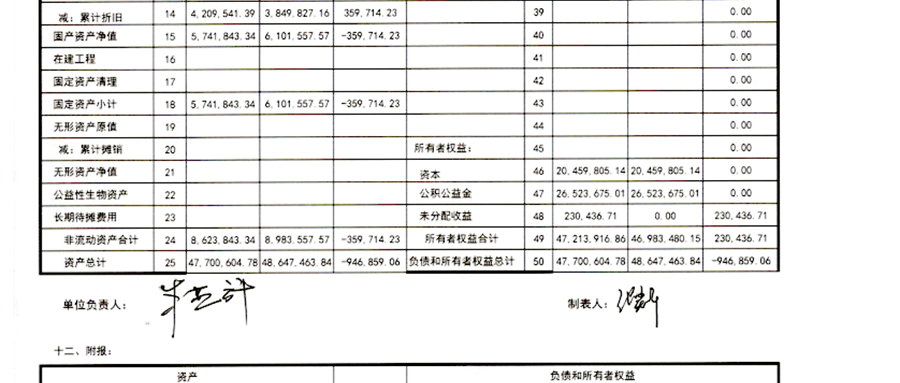 减：累计折旧 14 4,209,541.39 3,849,827.16 359,714.23 39 0.00
固产资产净值 15 5,741,843.34 6,101,557.57 -359,714.23 40 0.00
在建工程 16 41 0.00
固定资产清理 17 42 0.00
固定资产小计 18 5,741,843.34 6,101,557.57 -359,714.23 43 0.00
无形资产原值 19 44 0.00
减：累计摊销 20 所有者权益： 45 0.00
无形资产净值 21 资本 46 20,459,805.14 20,459,805.14 0.00
公益性生物资产 22 公积公益金 47 26,523,675.01 26,523,675.01 0.00
长期待摊费用 23 未分配收益 48 230,436.71 0.00 230,436.71
非流动资产合计 24 8,623,843.34 8,983,557.57 -359,714.23 所有者权益合计 49 47,213,916.86 46,983,480.15 230,436.71
资产总计 25 47,700,604.78 48,647,463.84 -946,859.06 负债和所有者权益总计 50 47,700,604.78 48,647,463.84 -946,859.06
单位负责人： 制表人：
十二、附报：
资产 负债和所有者权益